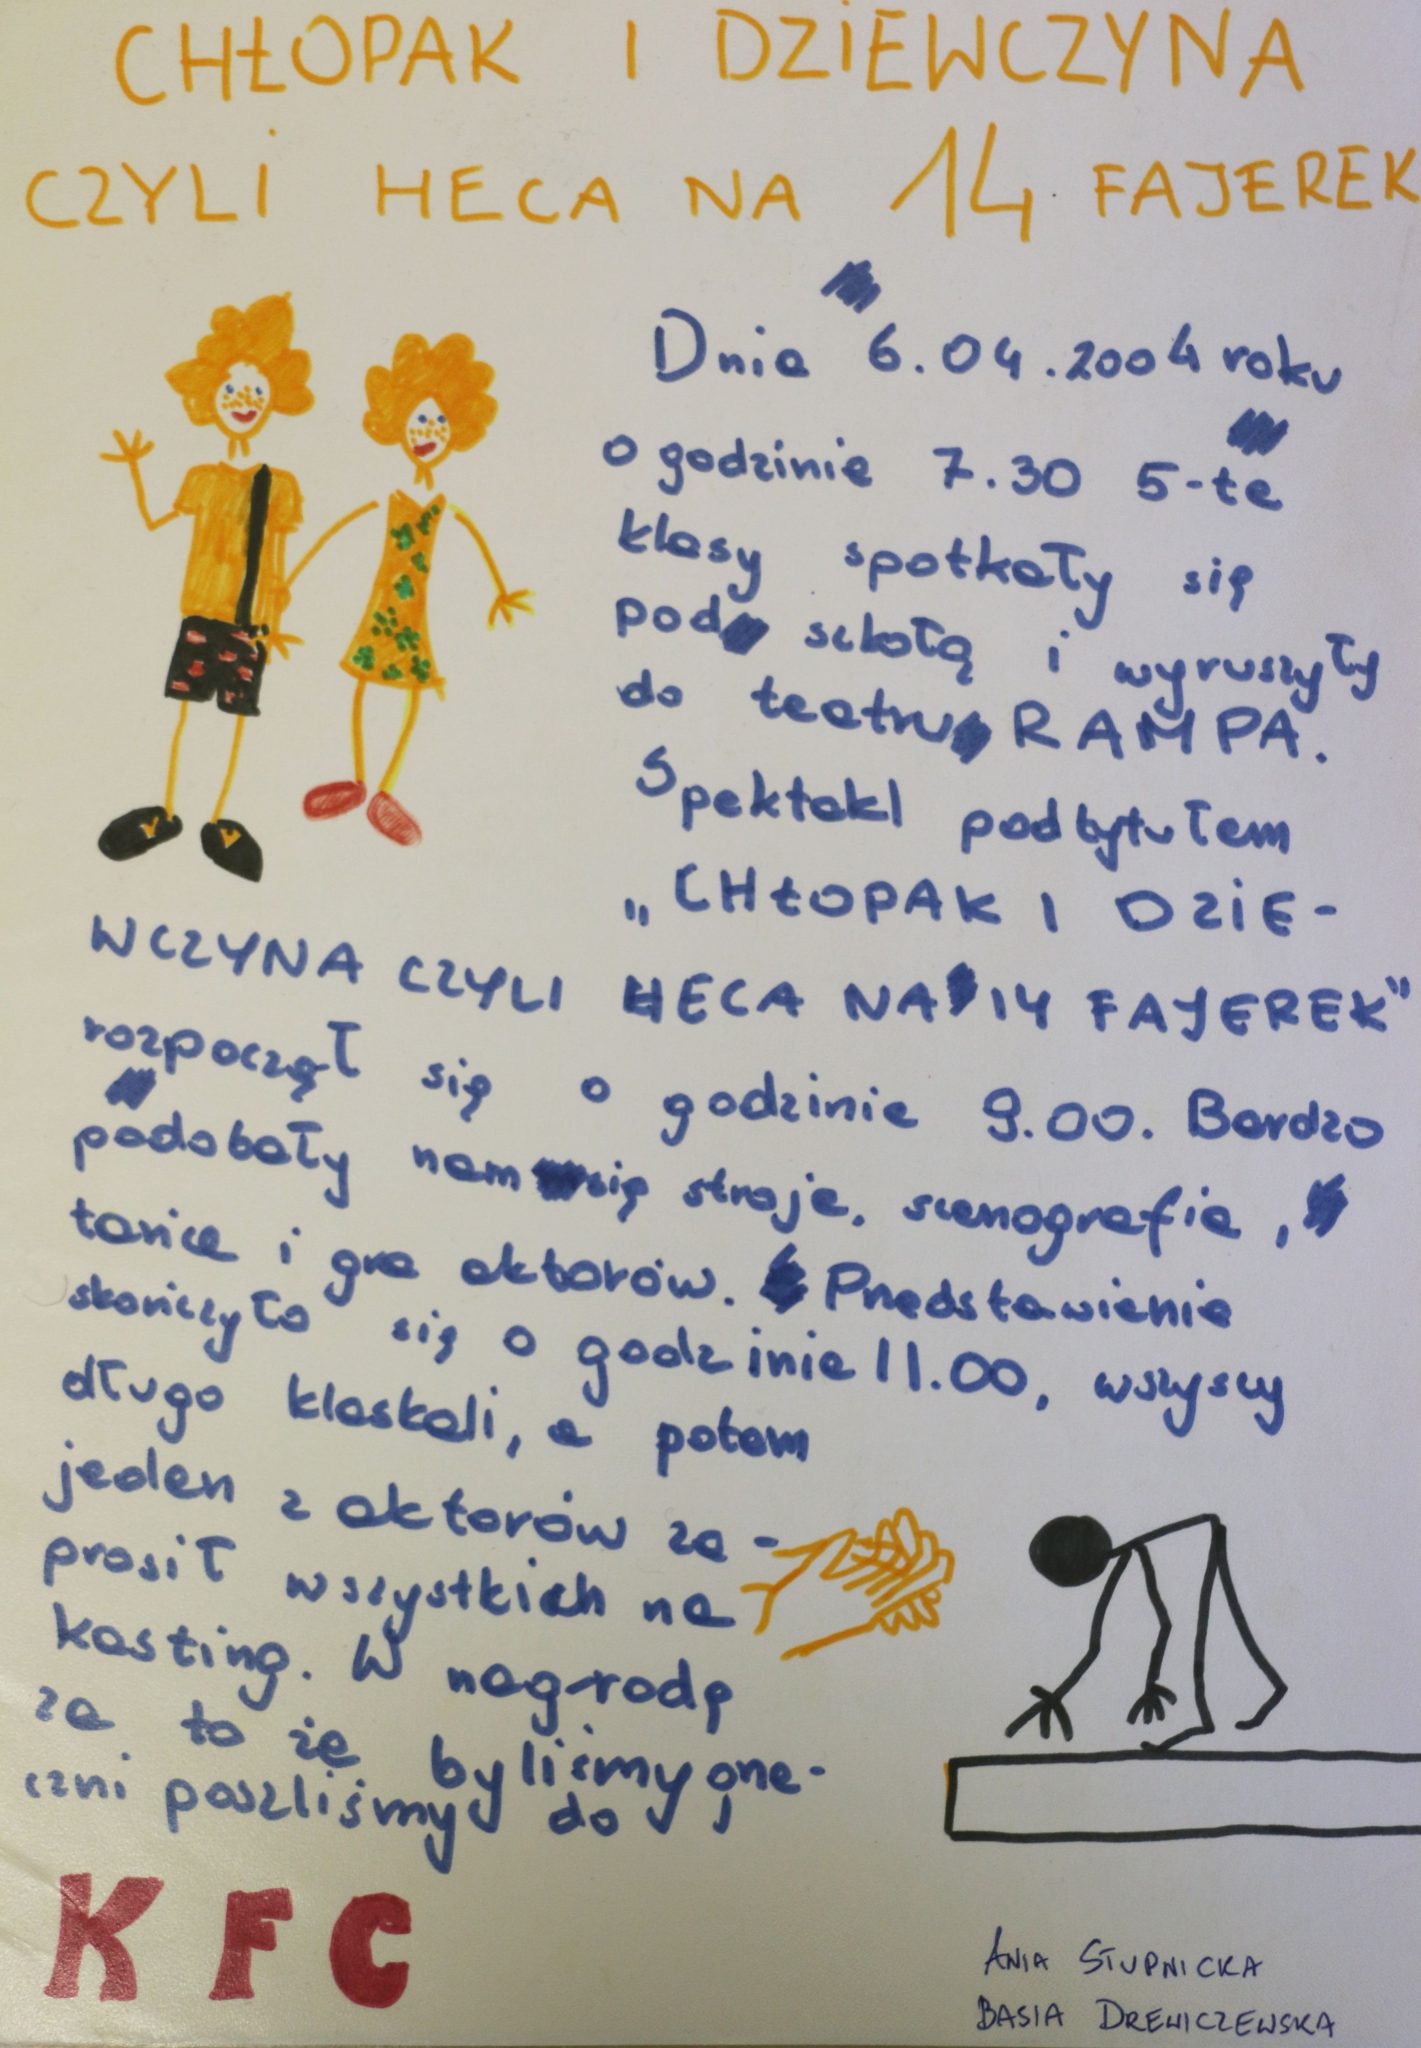 CHŁOPAK I DZIEWCZYNA
CZYLI HECA NA 14 FAJEREK
Dnia 6.04.2004 roku
o godzinie 7.30 5-te
klasy spotkały się
pod szkołą i wyruszyły
do teatru RAMPA.
Spektakl pod tytułem
„CHŁOPAK I DZIE-
WCZYNA CZYLI HECA NA 14 FAJEREK"
rozpoczął się o godzinie 9.00. Bardzo
podobały nam się stroje, scenografia,
tańce i gra aktorów. Przedstawienie
skończyło się o godzinie 11.00, wszyscy
długo klaskali, a potem
jeden z aktorów za-
prosił wszystkich na
kasting. W nagrodę
za to że byliśmy grze-
czni poszliśmy do
KFC
ANIA STUPNICKA
BASIA DREWICZEWSKA